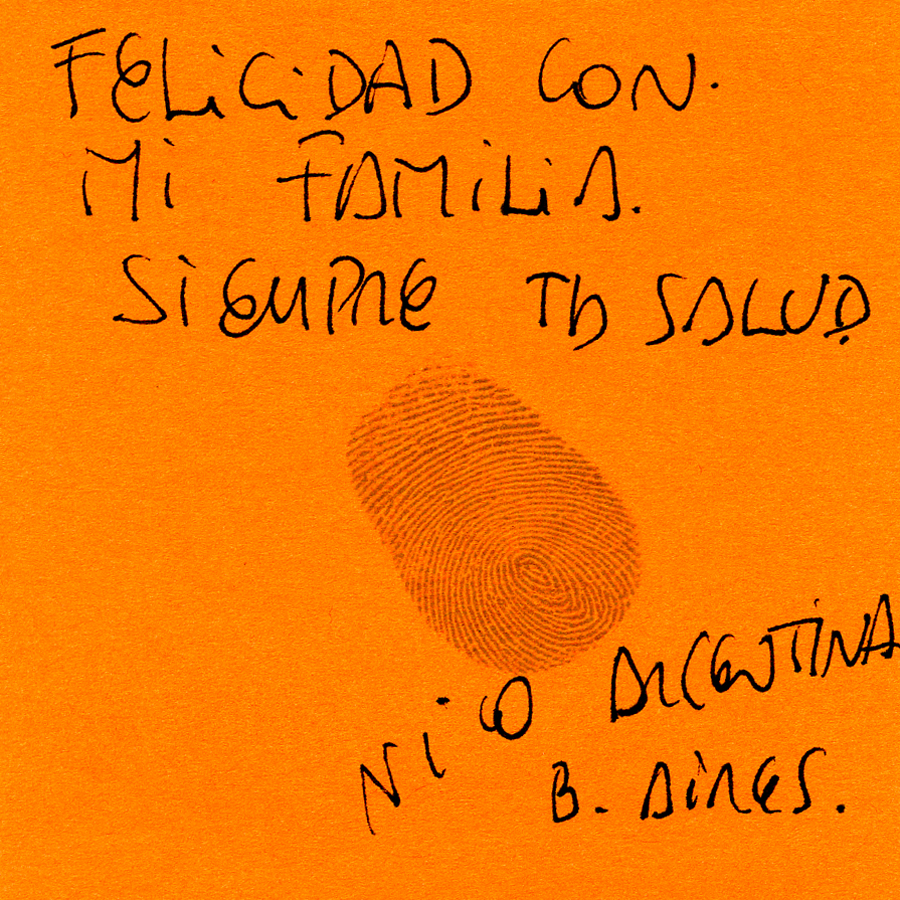 FELiCiDAD CON.
Mi FAMiLiA.
SiEMPRE TA SALUD
NiCO ARGENTINA
B. AiRES.